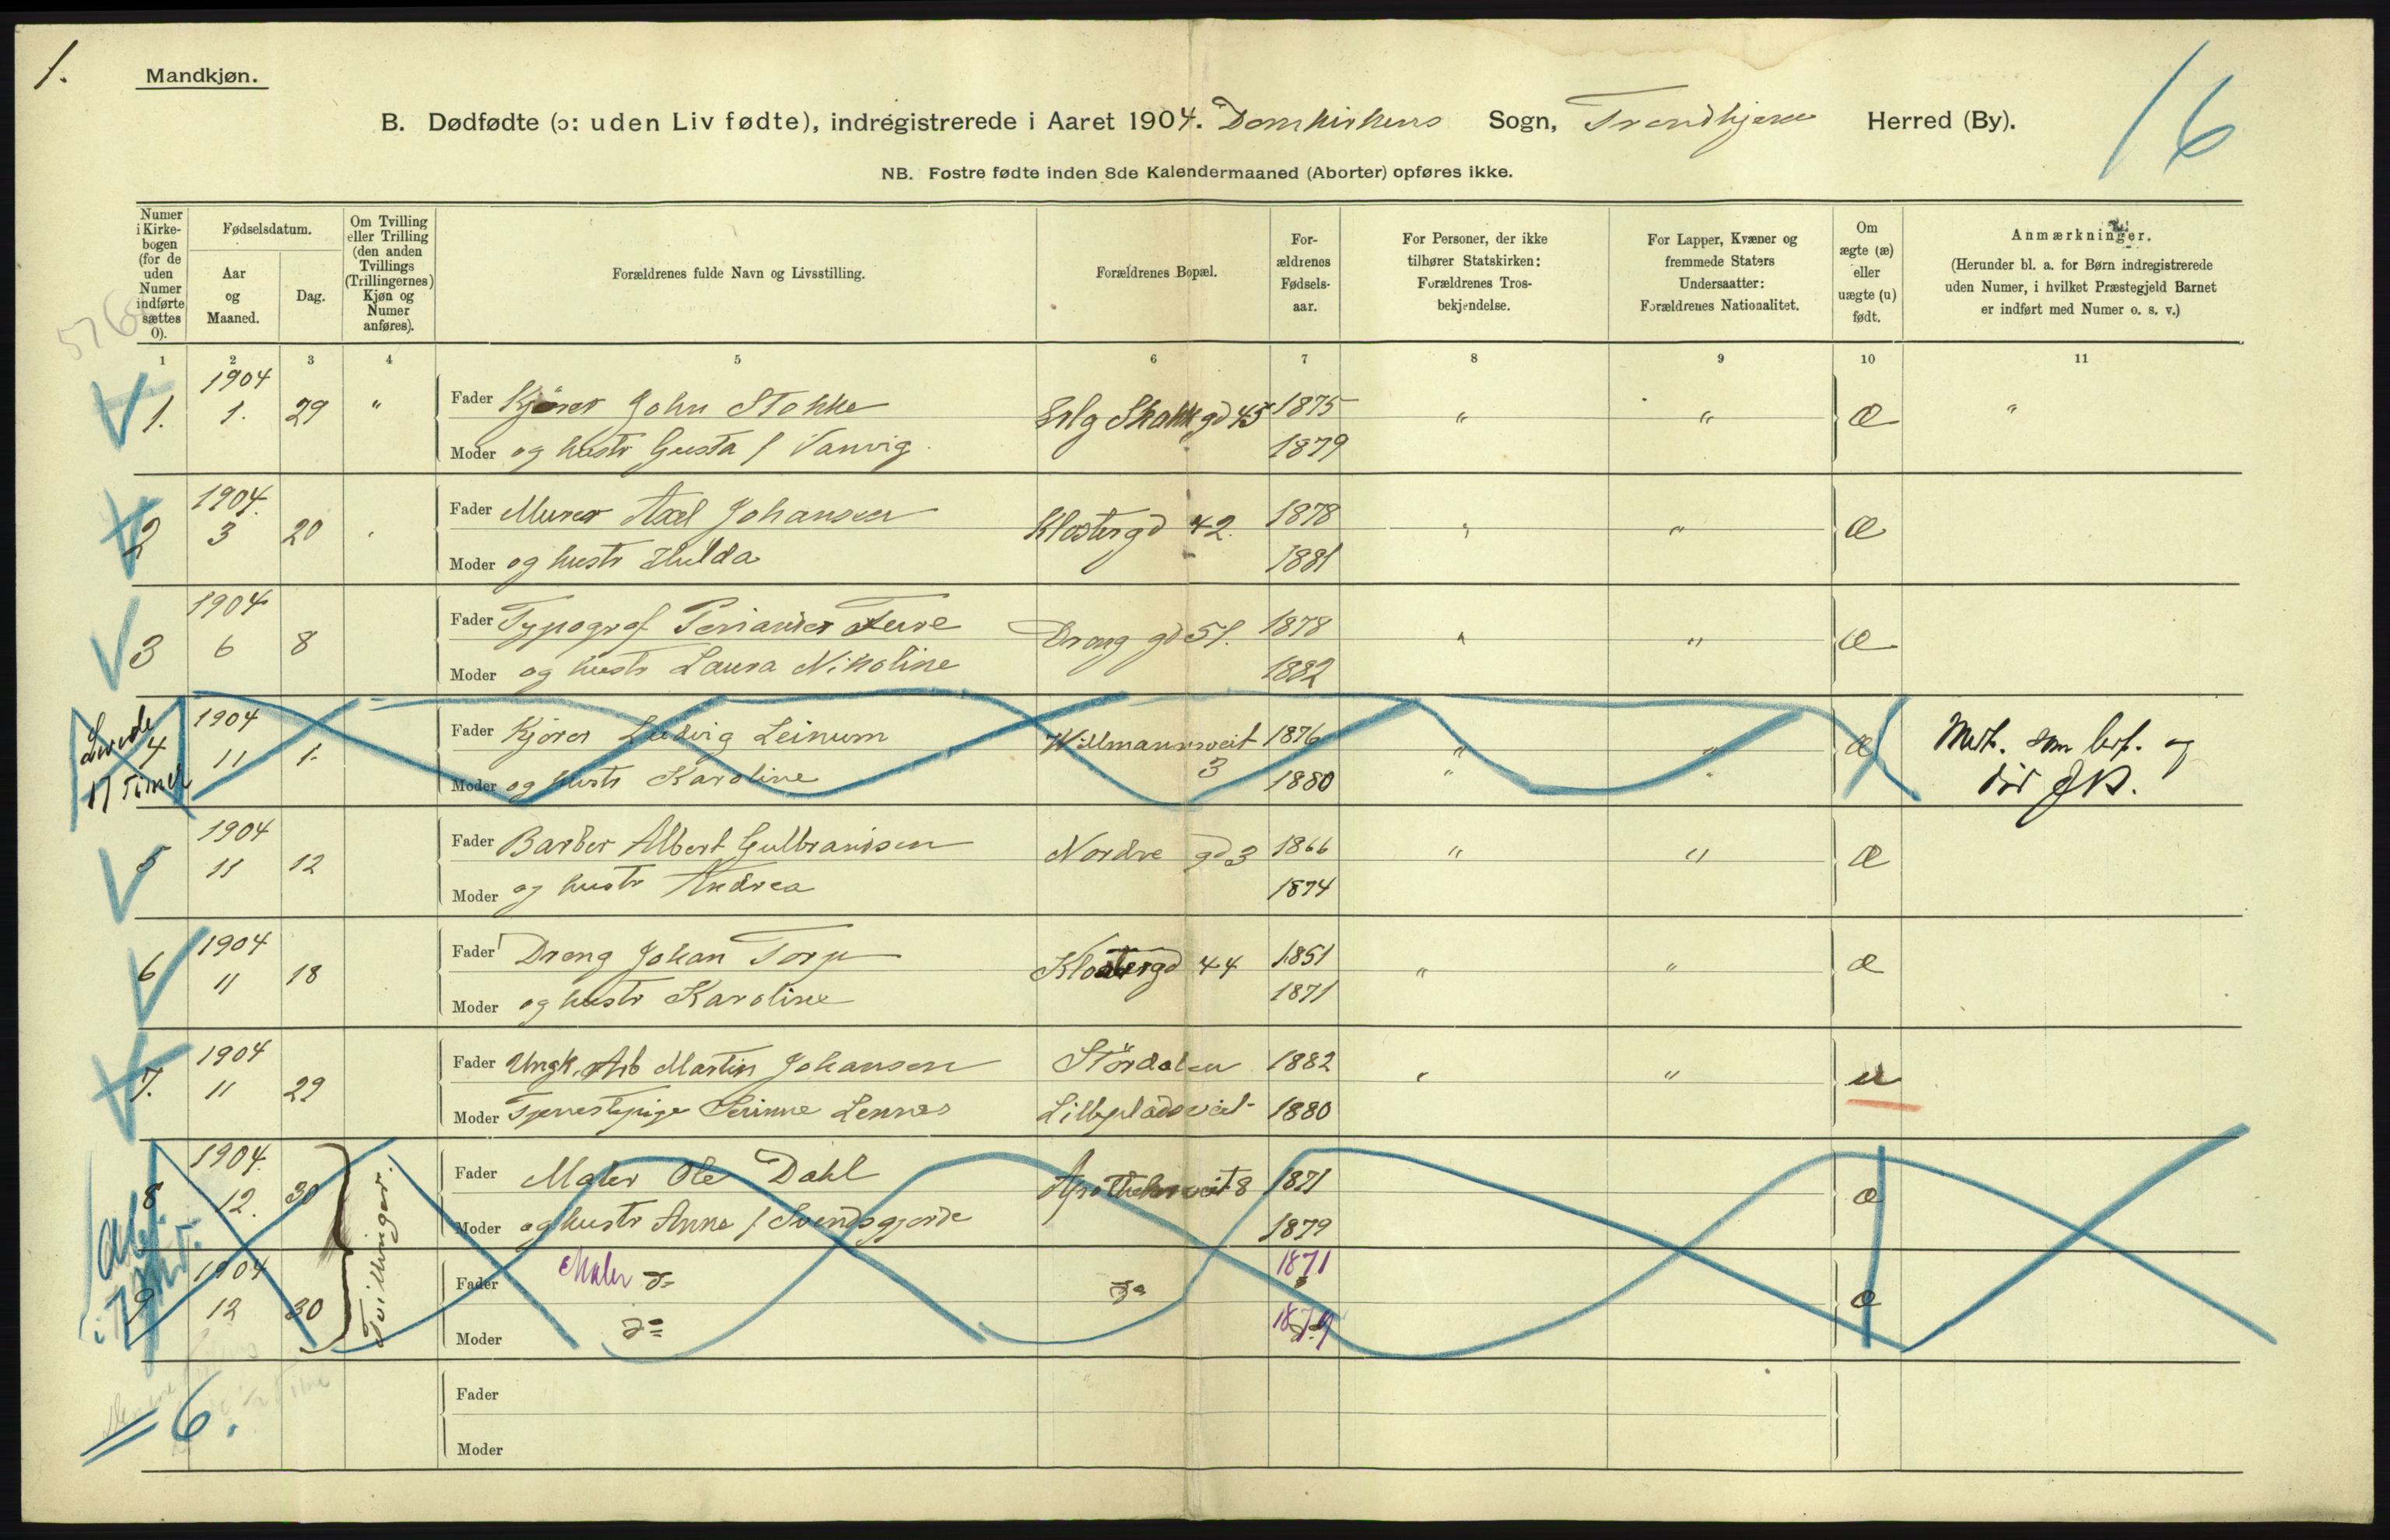 1.
Mandkjøn.
16
B. Dødfødte (ɔ: uden Liv fødte), indregistrerede i Aaret 1904. Domkirkens Sogn, Trondhjem Herred (By).
NB. Fostre fødte inden 8de Kalendermaaned (Aborter) opføres ikke.
Numer i Kirkebogen (for de uden Numer indførte sættes 0).
Fødselsdatum.
Aar og Maaned.
Dag.
Om Tvilling eller Trilling (den anden Tvillings (Trillingernes) Kjøn og Numer anføres).
Forældrenes fulde Navn og Livsstilling.
Forældrenes Bopæl.
Forældrenes Fødselsaar.
For Personer, der ikke tilhører Statskirken: Forældrenes Trosbekjendelse.
For Lapper, Kvæner og fremmede Staters Undersaatter: Forældrenes Nationalitet.
Om ægte (æ) eller uægte (u) født.
Anmærkninger.
(Herunder bl. a. for Børn indregistrerede uden Numer, i hvilket Præstegjeld Barnet er indført med Numer o. s. v.)
1 2 3 4 5 6 7 8 9 10 11
1904
1. 1. 29 " Fader Kjører John Stokke Erlg Skakk gd 45 1875 " " æ "
Moder og hustr Gusta f Vanvig 1879
1904.
2 3 20 Fader Murer Axel Johansen Klostergd 42. 1878 " " æ
Moder og hustr Hulda 1881
1904
3 6 8 Fader Typograf Periander Ture Drong gd 51. 1878 " " æ
Moder og hustr Laura Nikoline 1882
Levede 17 Timer
1904
4 11 1. Fader Kjører Ludvig Leinum Willmannsveit 3 1876 " " æ Medt. som lev. og død
Moder og hustr Karoline 1880 " "
1904
5 11 12 Fader Barber Albert Gulbrandsen Nordre gd 3 1866 " " æ
Moder og hustr Andrea 1874
1904
6 11 18 Fader Dreng Johan Torp Klostergd 44 1851 " " æ
Moder og hustr Karoline 1871
1904
7. 11 29 Fader Ungk. Arb Martin Johansen Stördalen 1882 " " u
Moder Tjenestepige Serinne Lennes Lillepladsveit 1880
1904.
8 12. 30 Tvillinger. Fader Maler Ole Dahl Apothekerveit 8 1871 æ
Moder og hustr Anna f Svendsgjerde 1879
1904
9 12 30 Fader Maler do do 1871 æ
Moder do 1879
Fader
Moder
6.